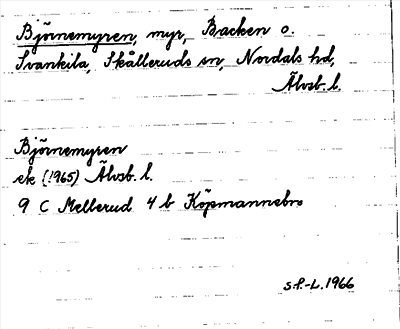 Björnemyren, myr, Backen o.
Svankila, Skålleruds sn, Nordals hd,
Älvsb. l.
Björnemyren
ek (1965) Älvsb. l.
9 C Mellerud 4 b Köpmannebro
S.F.-L. 1966